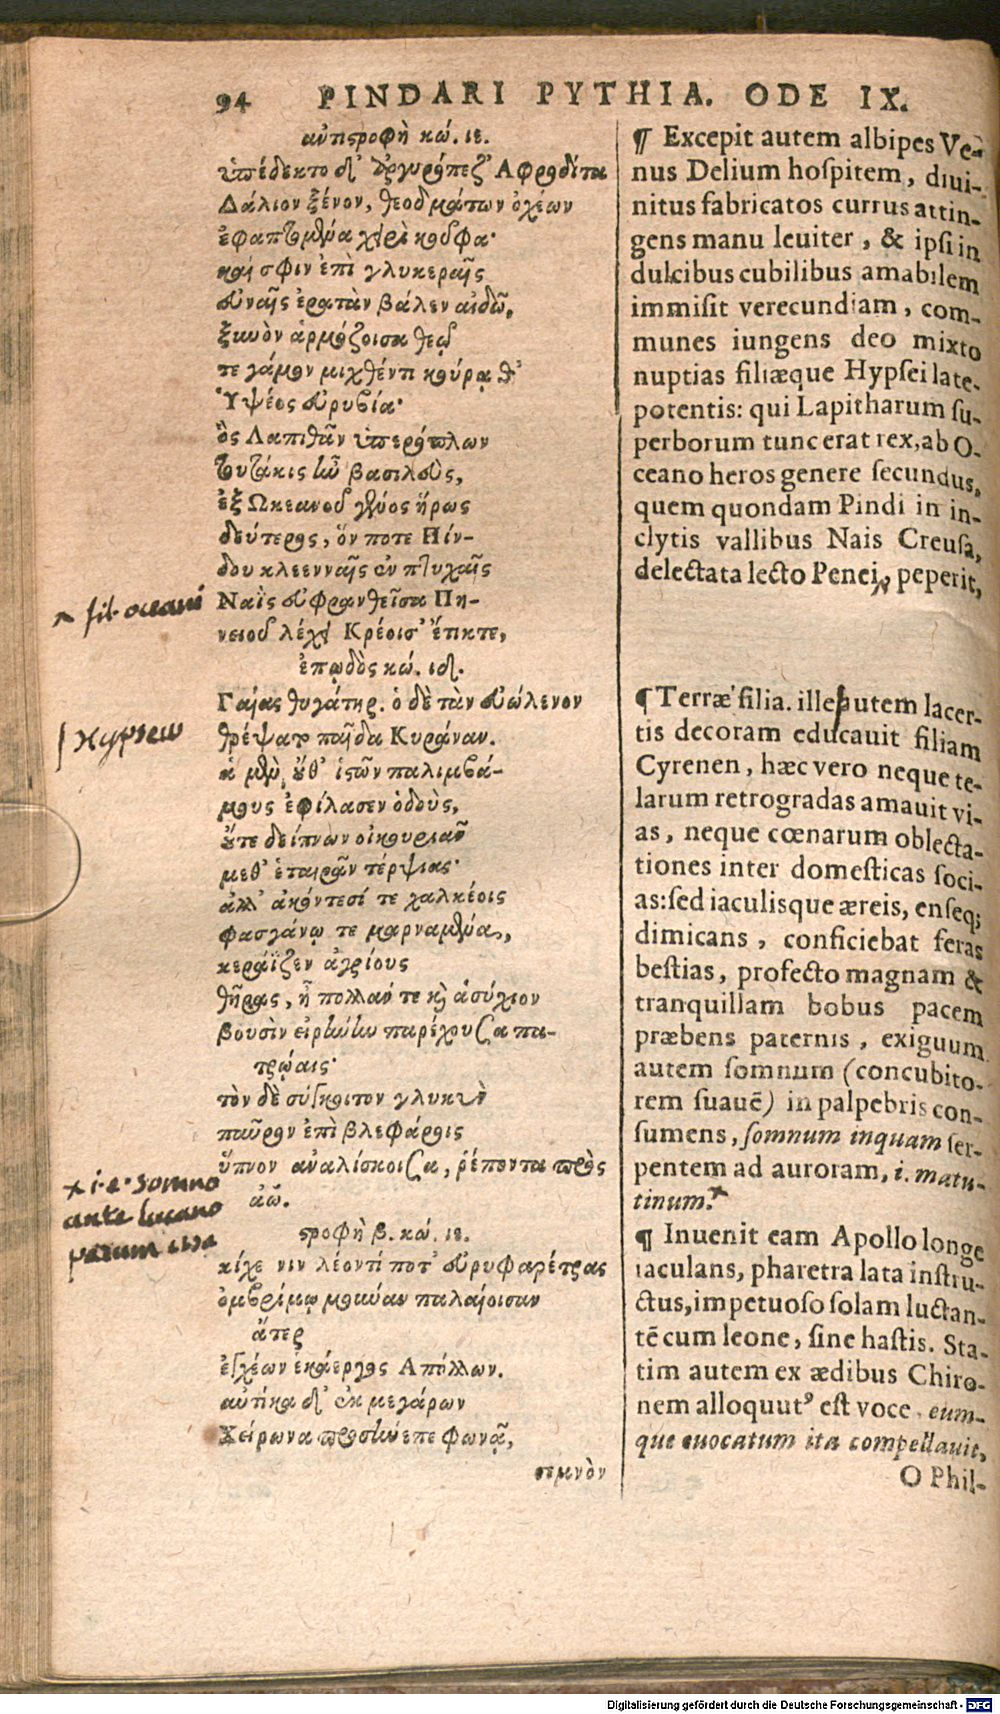 94 PINDARI PYTHIA. ODE IX.
αὐτιστροφὴ κώ. ιε.
ὑπέδεκτο δ' ἀργυρόπεζ' Ἀφροδίτα
Δάλιον ξένον, θεοδμάτων ὀχέων
ἐφαπτομένα χερὶ κούφα·
καί σφιν ἐπὶ γλυκεραῖς
εὐναῖς ἐρατὰν βάλεν αἰδῶ,
ξυνὸν ἁρμόζοισα θεῷ
τε γάμον μιχθέντι κούρᾳ θ'
Ὑψέος εὐρυβία·
ὃς Λαπιθᾶν ὑπερόπλων
τουτάκις ἦν βασιλεὺς,
ἐξ Ὠκεανοῦ γένος ἥρως
δεύτερος, ὅν ποτε Πίν-
δου κλεενναῖς ἐν πτυχαῖς
Ναῒς εὐφρανθεῖσα Πη-
νειοῦ λέχει Κρέοισ' ἔτικτε,
ἐπῳδὸς κώ. ιδ.
Γαίας θυγάτηρ. ὁ δὲ τὰν εὐώλενον
θρέψατο παῖδα Κυράναν.
ἁ μὲν οὔθ' ἱστῶν παλιμβά-
μους ἐφίλασεν ὁδοὺς,
οὔτε δείπνων οἰκουριᾶν
μεθ' ἑταιρᾶν τέρψιας·
ἀλλ' ἀκόντεσί τε χαλκέοις
φασγάνῳ τε μαρναμένα,
κεράϊζεν ἀγρίους
θῆρας, ἦ πολλάν τε καὶ ἁσύχιον
βουσὶν εἰρήναν παρέχουσα πα-
τρῴαις·
τὸν δὲ σύγκοιτον γλυκὺν
παῦρον ἐπὶ βλεφάροις
ὕπνον ἀναλίσκοισα, ῥέποντα πρὸς
ἀῶ.
στροφὴ β. κώ. ιε.
κίχε νιν λέοντί ποτ' εὐρυφαρέτρας
ὀμβρίμῳ μούναν παλαίοισαν
ἄτερ
ἐγχέων ἑκάεργος Ἀπόλλων.
αὐτίκα δ' ἐκ μεγάρων
Χείρωνα προσήνεπε φωνᾷ,
σεμνὸν
¶ Excepit autem albipes Ve-
nus Delium hoſpitem, diui-
nitus fabricatos currus attin-
gens manu leuiter, & ipſi in
dulcibus cubilibus amabilem
immiſit verecundiam, com-
munes iungens deo mixto
nuptias filiæque Hypſei late-
potentis: qui Lapitharum ſu-
perborum tunc erat rex, ab O-
ceano heros genere ſecundus,
quem quondam Pindi in in-
clytis vallibus Nais Creuſa,
delectata lecto Penei, peperit,
¶ Terræ filia. ille autem lacer-
tis decoram educauit filiam
Cyrenen, hæc vero neque te-
larum retrogradas amauit vi-
as, neque cœnarum oblecta-
tiones inter domeſticas ſoci-
as: ſed iaculisque æreis, enſeq;
dimicans, conficiebat feras
beſtias, profecto magnam &
tranquillam bobus pacem
præbens paternis, exiguum
autem ſomnum (concubito-
rem ſuauē) in palpebris con-
ſumens, ſomnum inquam ſer-
pentem ad auroram, i. matu-
tinum.
¶ Inuenit eam Apollo longe
iaculans, pharetra lata inſtru-
ctus, impetuoſo ſolam luctan-
tē cum leone, ſine haſtis. Sta-
tim autem ex ædibus Chiro-
nem alloquutꝰ eſt voce, eum-
que euocatum ita compellauit,
O Phil-
^ fil. oceani
Hypseus
x i.e. somno
ante lucano
Digitalisierung gefördert durch die Deutsche Forschungsgemeinschaft - DFG